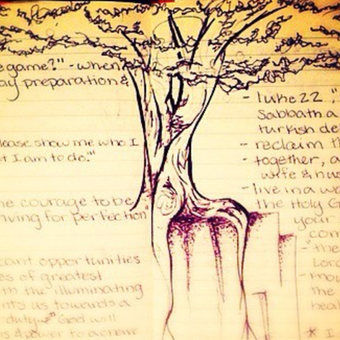 e game?" - when
ay preparation &
lease show me who I
t I am to do."
he courage to be
iving for perfection"
cant opportunities
es of greatest
th the illuminating
nts us towards a
duty God will
s & power to achieve
- luke 22,
Sabbath a
turkish de
- reclaim th
- together, a
wife & hus
- live in a wa
the Holy G
your
com
"the
Lor
- mou
the
heal
* I